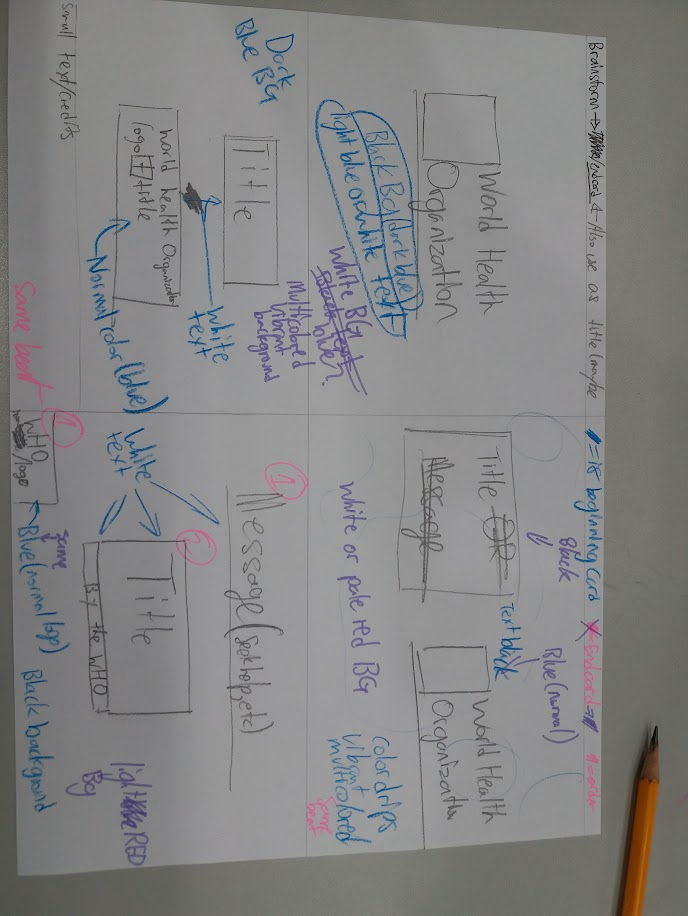 Brainstorm → endcard ← Also use as title (maybe
= is beginning card
X = Endcard =
= order
World Health
Organization
Black BG (dark blue)
light blue or white text
White BG
Multicolored
vibrant
background
Title OR
Message
Black
Text black
Blue (normal)
World Health
Organization
White or pale red BG
color drips
vibrant
multicolored
same
beat
Dark
Blue BG
Title
White
text
World health Organization
logo + title
Normal color (blue)
Small text/credits
1
Message (seek help, etc)
White
text
2
Title
By the WHO
light RED
BG
Same beat
1
WHO
logo
same
Blue (normal logo)
Black background